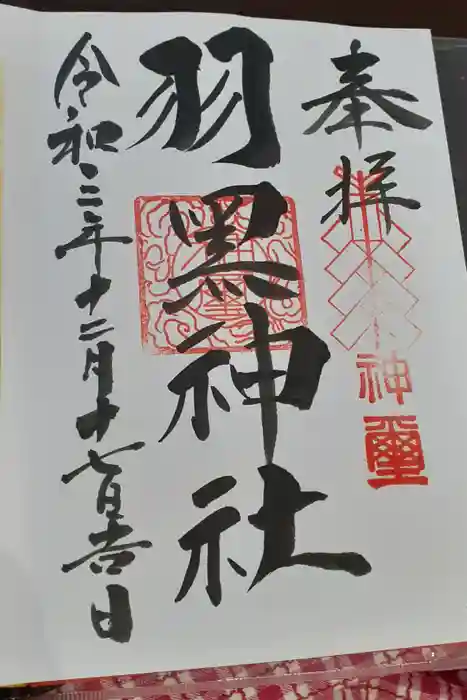 奉拝
神璽
羽黒神社
令和二年十二月十七日吉日